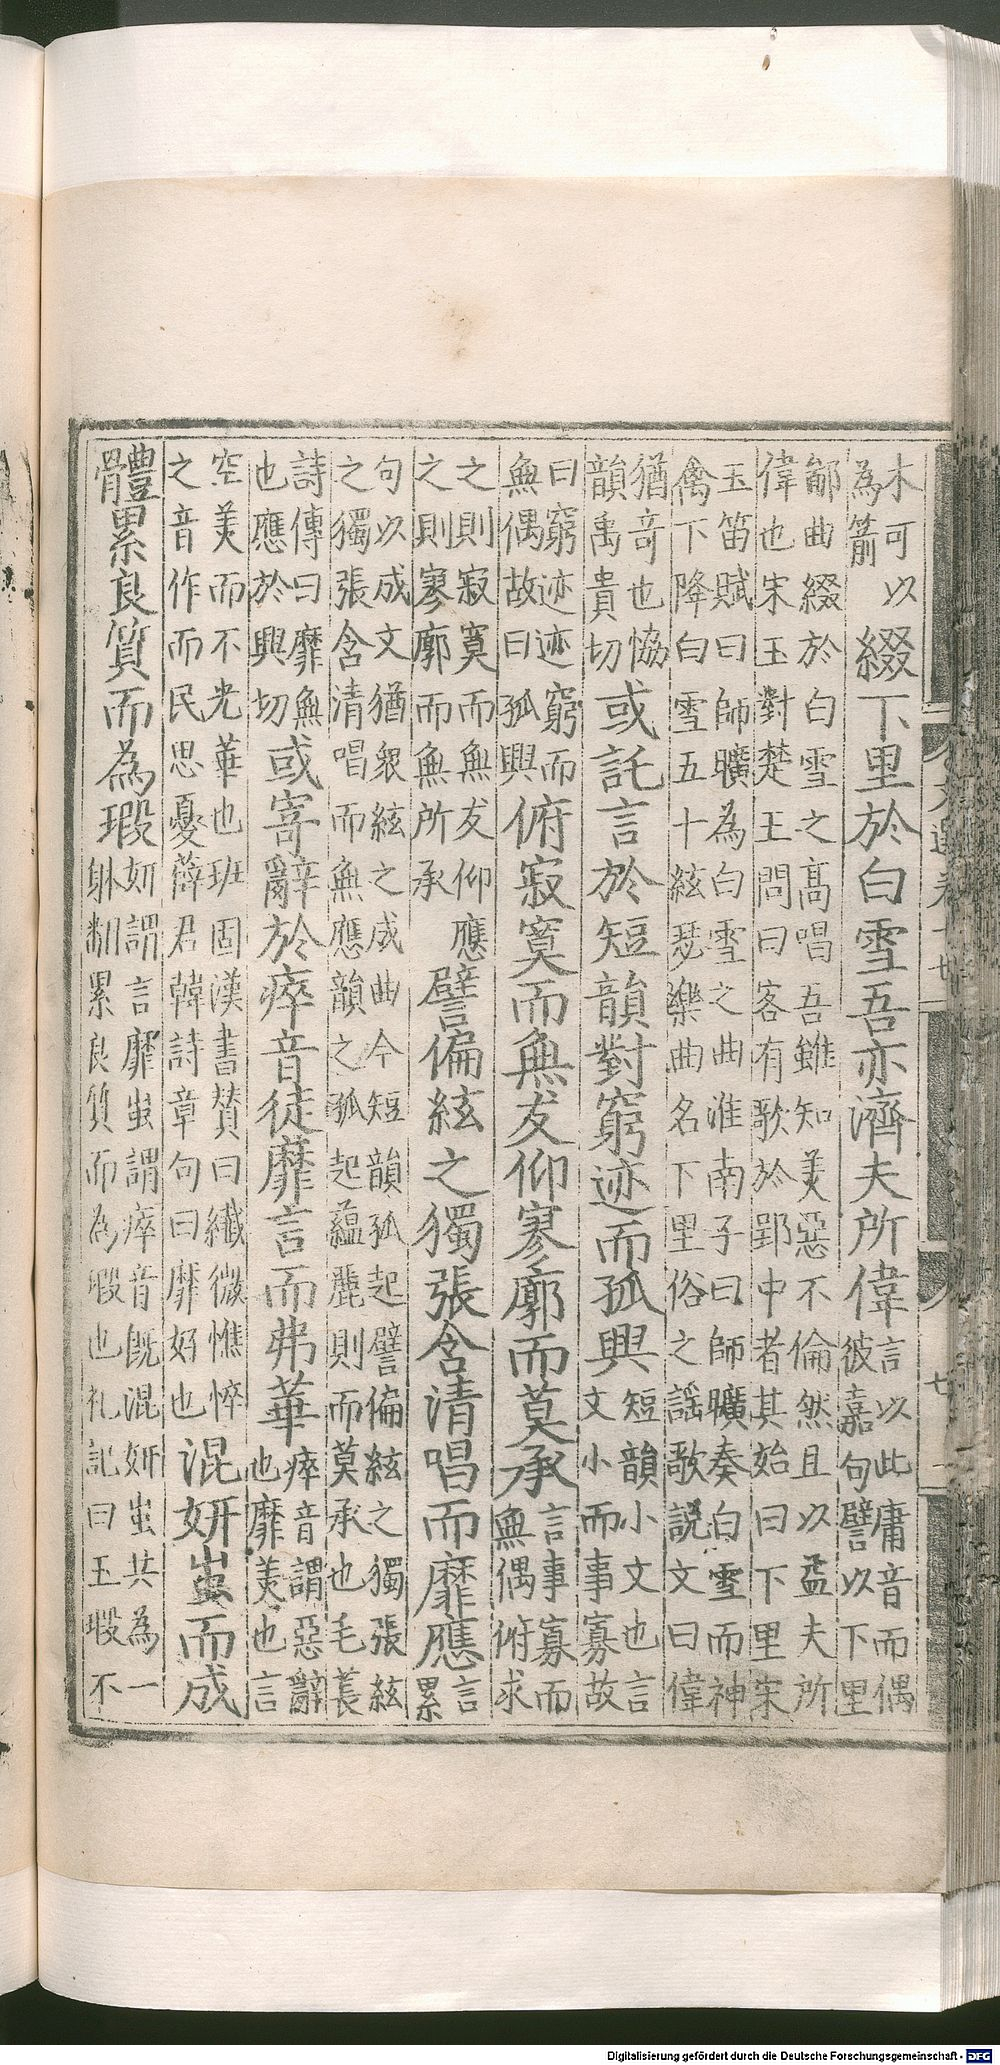 木可以
為箭
綴下里於白雪吾亦濟夫所偉
言以此庸音而偶
彼嘉句譬以下里
鄙曲綴於白雪之高唱吾雖知美惡不倫然且以益夫所
偉也宋玉對楚王問曰客有歌於郢中者其始曰下里宋
玉笛賦曰師曠為白雪之曲淮南子曰師曠奏白雪而神
禽下降白雪五十絃瑟樂曲名下里俗之謡歌說文曰偉
猶竒也恊
韻禹貴切
或託言於短韻對窮迹而孤興
短韻小文也言
文小而事寡故
曰窮迹迹窮而
無偶故曰孤興
俯寂寞而無友仰寥廓而莫承
言事寡而
無偶俯求
之則寂寞而無友仰應
之則寥廓而無所承
譬偏絃之獨張含清唱而靡應
言
累
句以成文猶衆絃之成曲今短韻孤起譬偏絃之獨張絃
之獨張含清唱而無應韻之孤起蘊麗則而莫承也毛萇
詩傳曰靡無
也應於興切
或寄辭於瘁音徒靡言而弗華
瘁音謂惡辭
也靡美也言
空美而不光華也班固漢書贊曰纎微憔悴
之音作而民思憂薛君韓詩章句曰靡好也
混妍蚩而成
體累良質而為瑕
妍謂言靡蚩謂瘁音旣混妍蚩共為一
躰翻累良質而為瑕也礼記曰玉瑕不
Digitalisierung gefördert durch die Deutsche Forschungsgemeinschaft - DFG